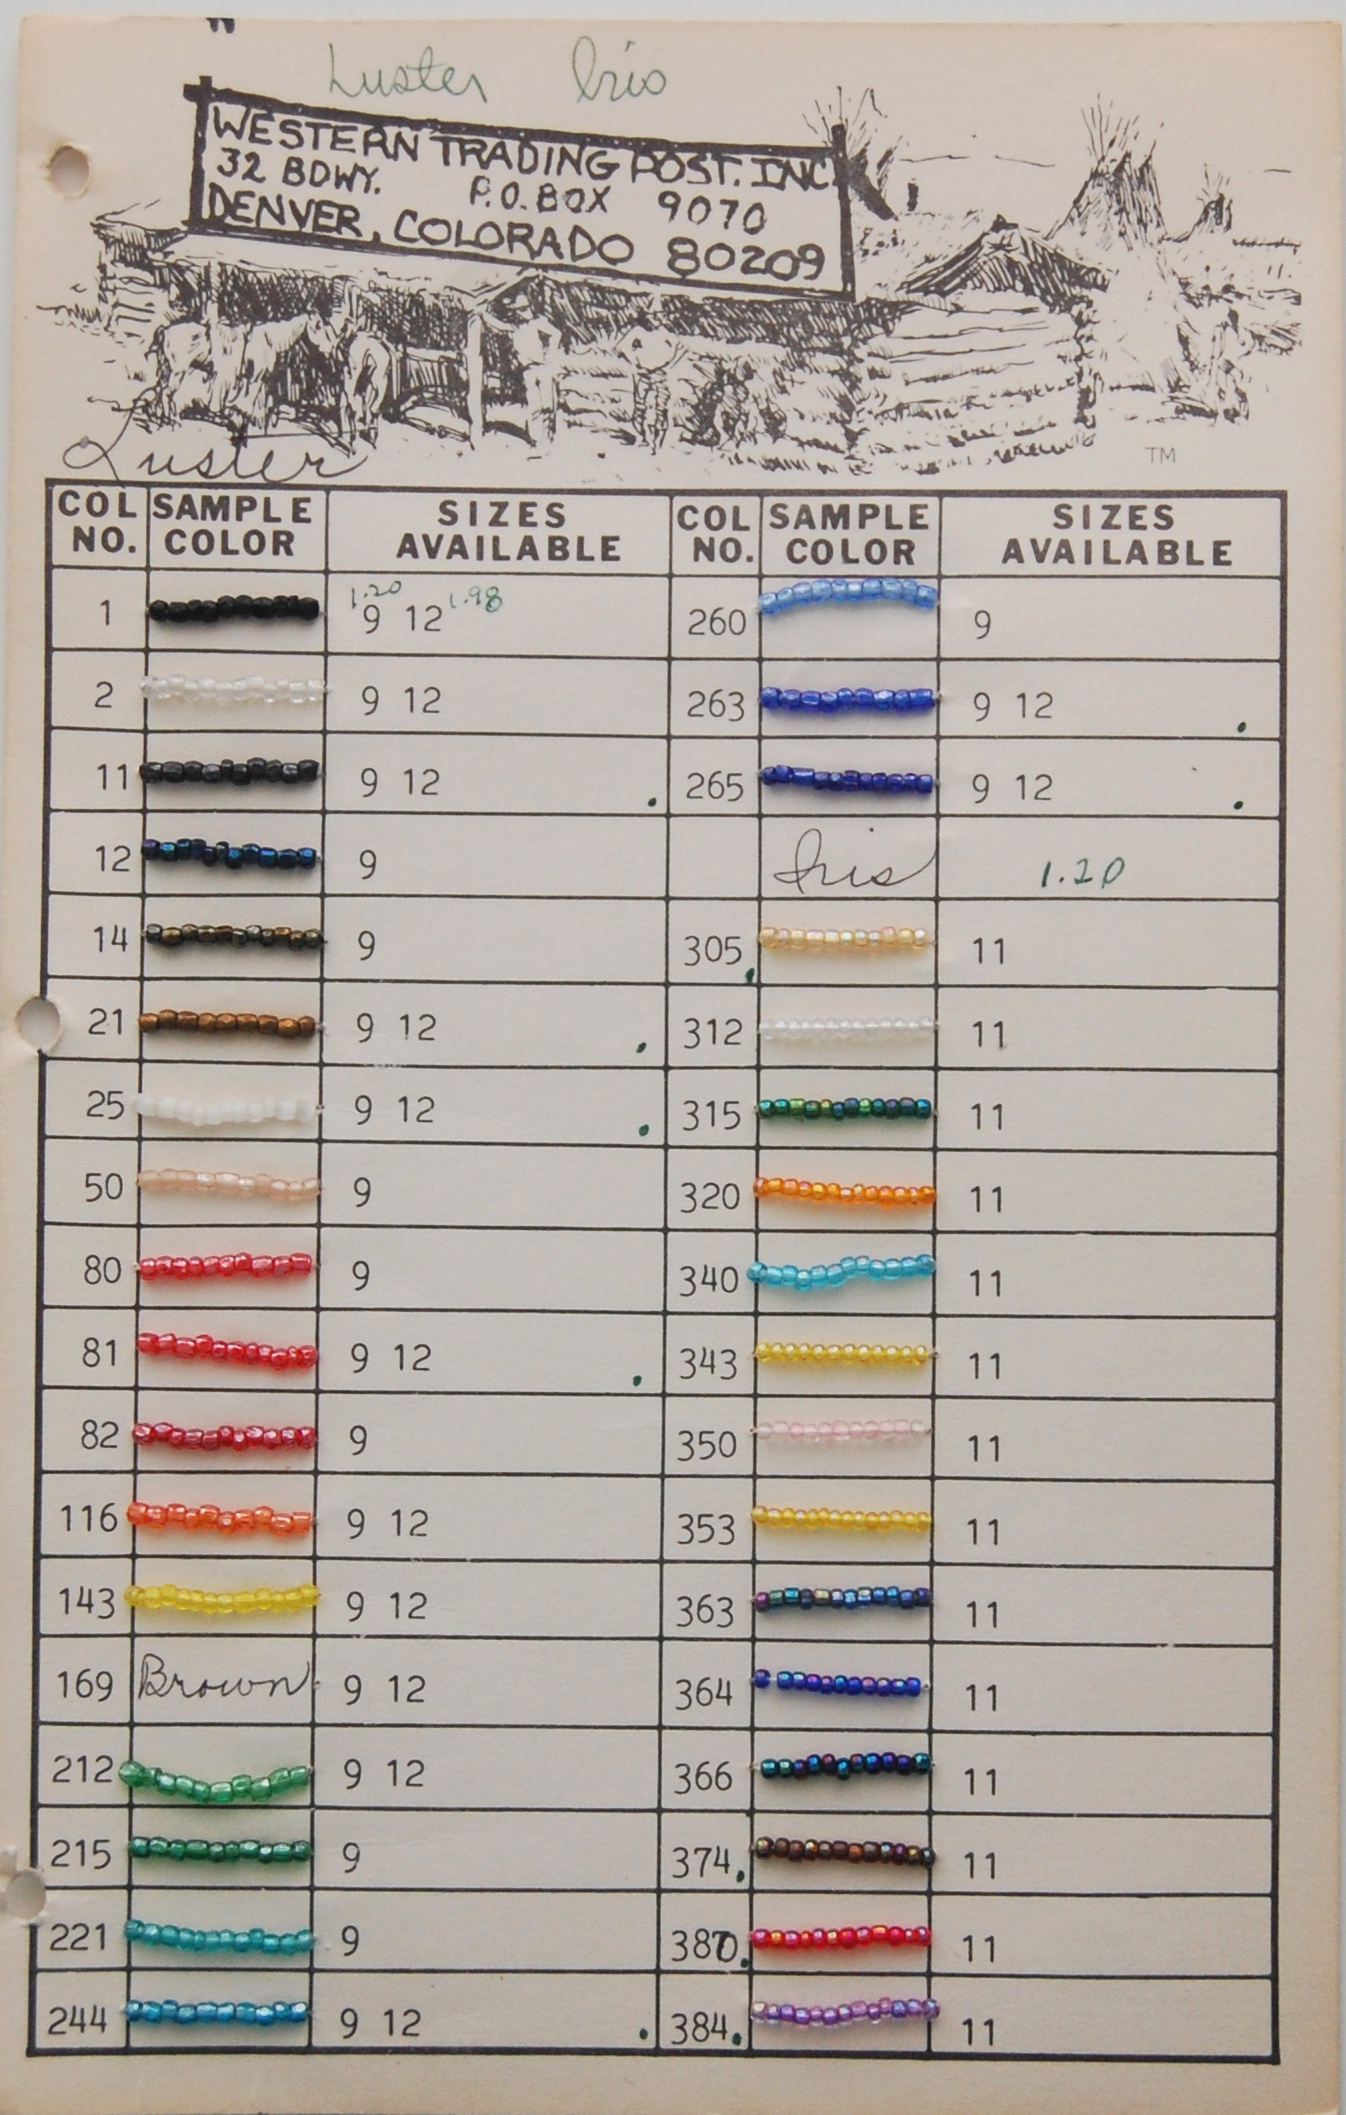 Luster Iris
WESTERN TRADING POST. INC.
32 BDWY. P.O. BOX 9070
DENVER, COLORADO 80209
TM
Luster
COL NO. SAMPLE COLOR SIZES AVAILABLE COL NO. SAMPLE COLOR SIZES AVAILABLE
1 1.20 9 12 1.98 260 9
2 9 12 263 9 12
11 9 12 265 9 12
12 9 Iris 1.20
14 9 305 11
21 9 12 312 11
25 9 12 315 11
50 9 320 11
80 9 340 11
81 9 12 343 11
82 9 350 11
116 9 12 353 11
143 9 12 363 11
169 Brown 9 12 364 11
212 9 12 366 11
215 9 374 11
221 9 11
244 9 12 384 11